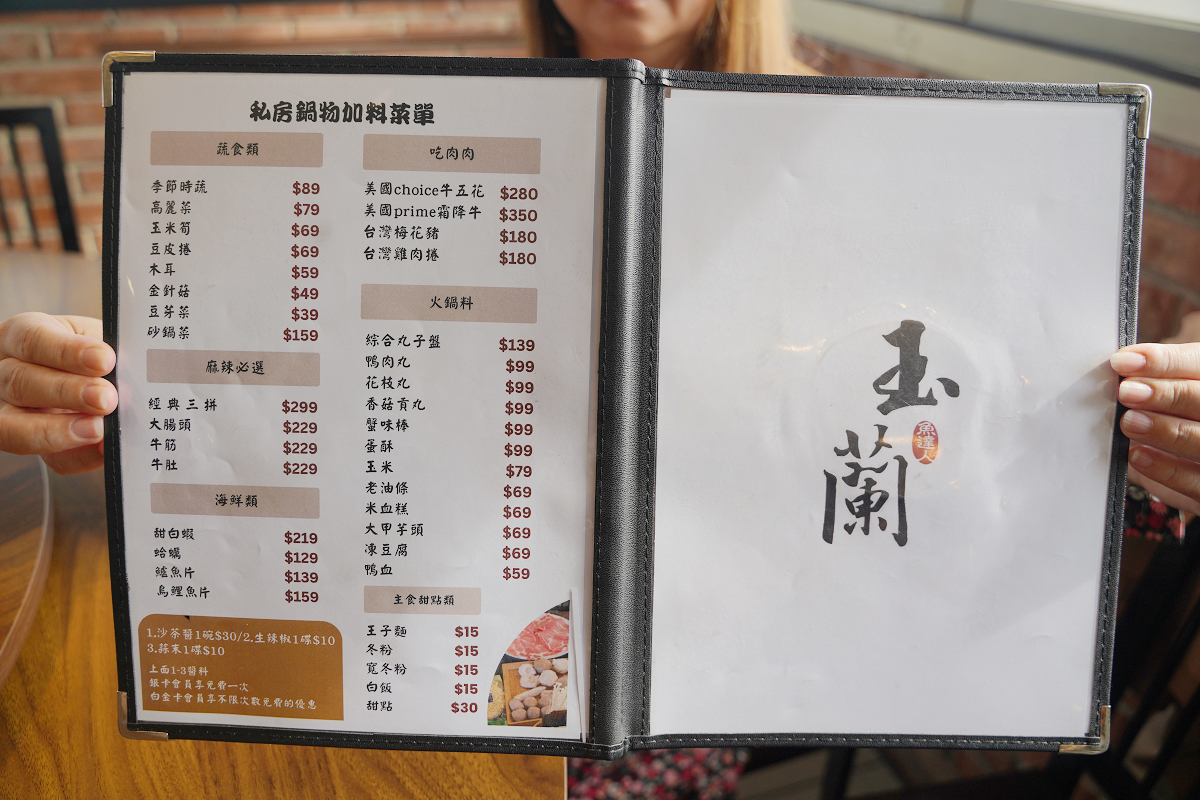 私房鍋物加料菜單
蔬食類
季節時蔬 $89
高麗菜 $79
玉米筍 $69
豆皮捲 $69
木耳 $59
金針菇 $49
豆芽菜 $39
砂鍋菜 $159
麻辣必選
經典三拼 $299
大腸頭 $229
牛筋 $229
牛肚 $229
海鮮類
甜白蝦 $219
蛤蠣 $129
鱸魚片 $139
烏鯉魚片 $159
1.沙茶醬1碗$30/2.生辣椒1碟$10
3.蒜末1碟$10
上面1-3醬料
銀卡會員享免費一次
白金卡會員享不限次數免費的優惠
吃肉肉
美國choice牛五花 $280
美國prime霜降牛 $350
台灣梅花豬 $180
台灣雞肉捲 $180
火鍋料
綜合丸子盤 $139
鴨肉丸 $99
花枝丸 $99
香菇貢丸 $99
蟹味棒 $99
蛋酥 $99
玉米 $79
老油條 $69
米血糕 $69
大甲芋頭 $69
凍豆腐 $69
鴨血 $59
主食甜點類
王子麵 $15
冬粉 $15
寬冬粉 $15
白飯 $15
甜點 $30
玉蘭
魚達人